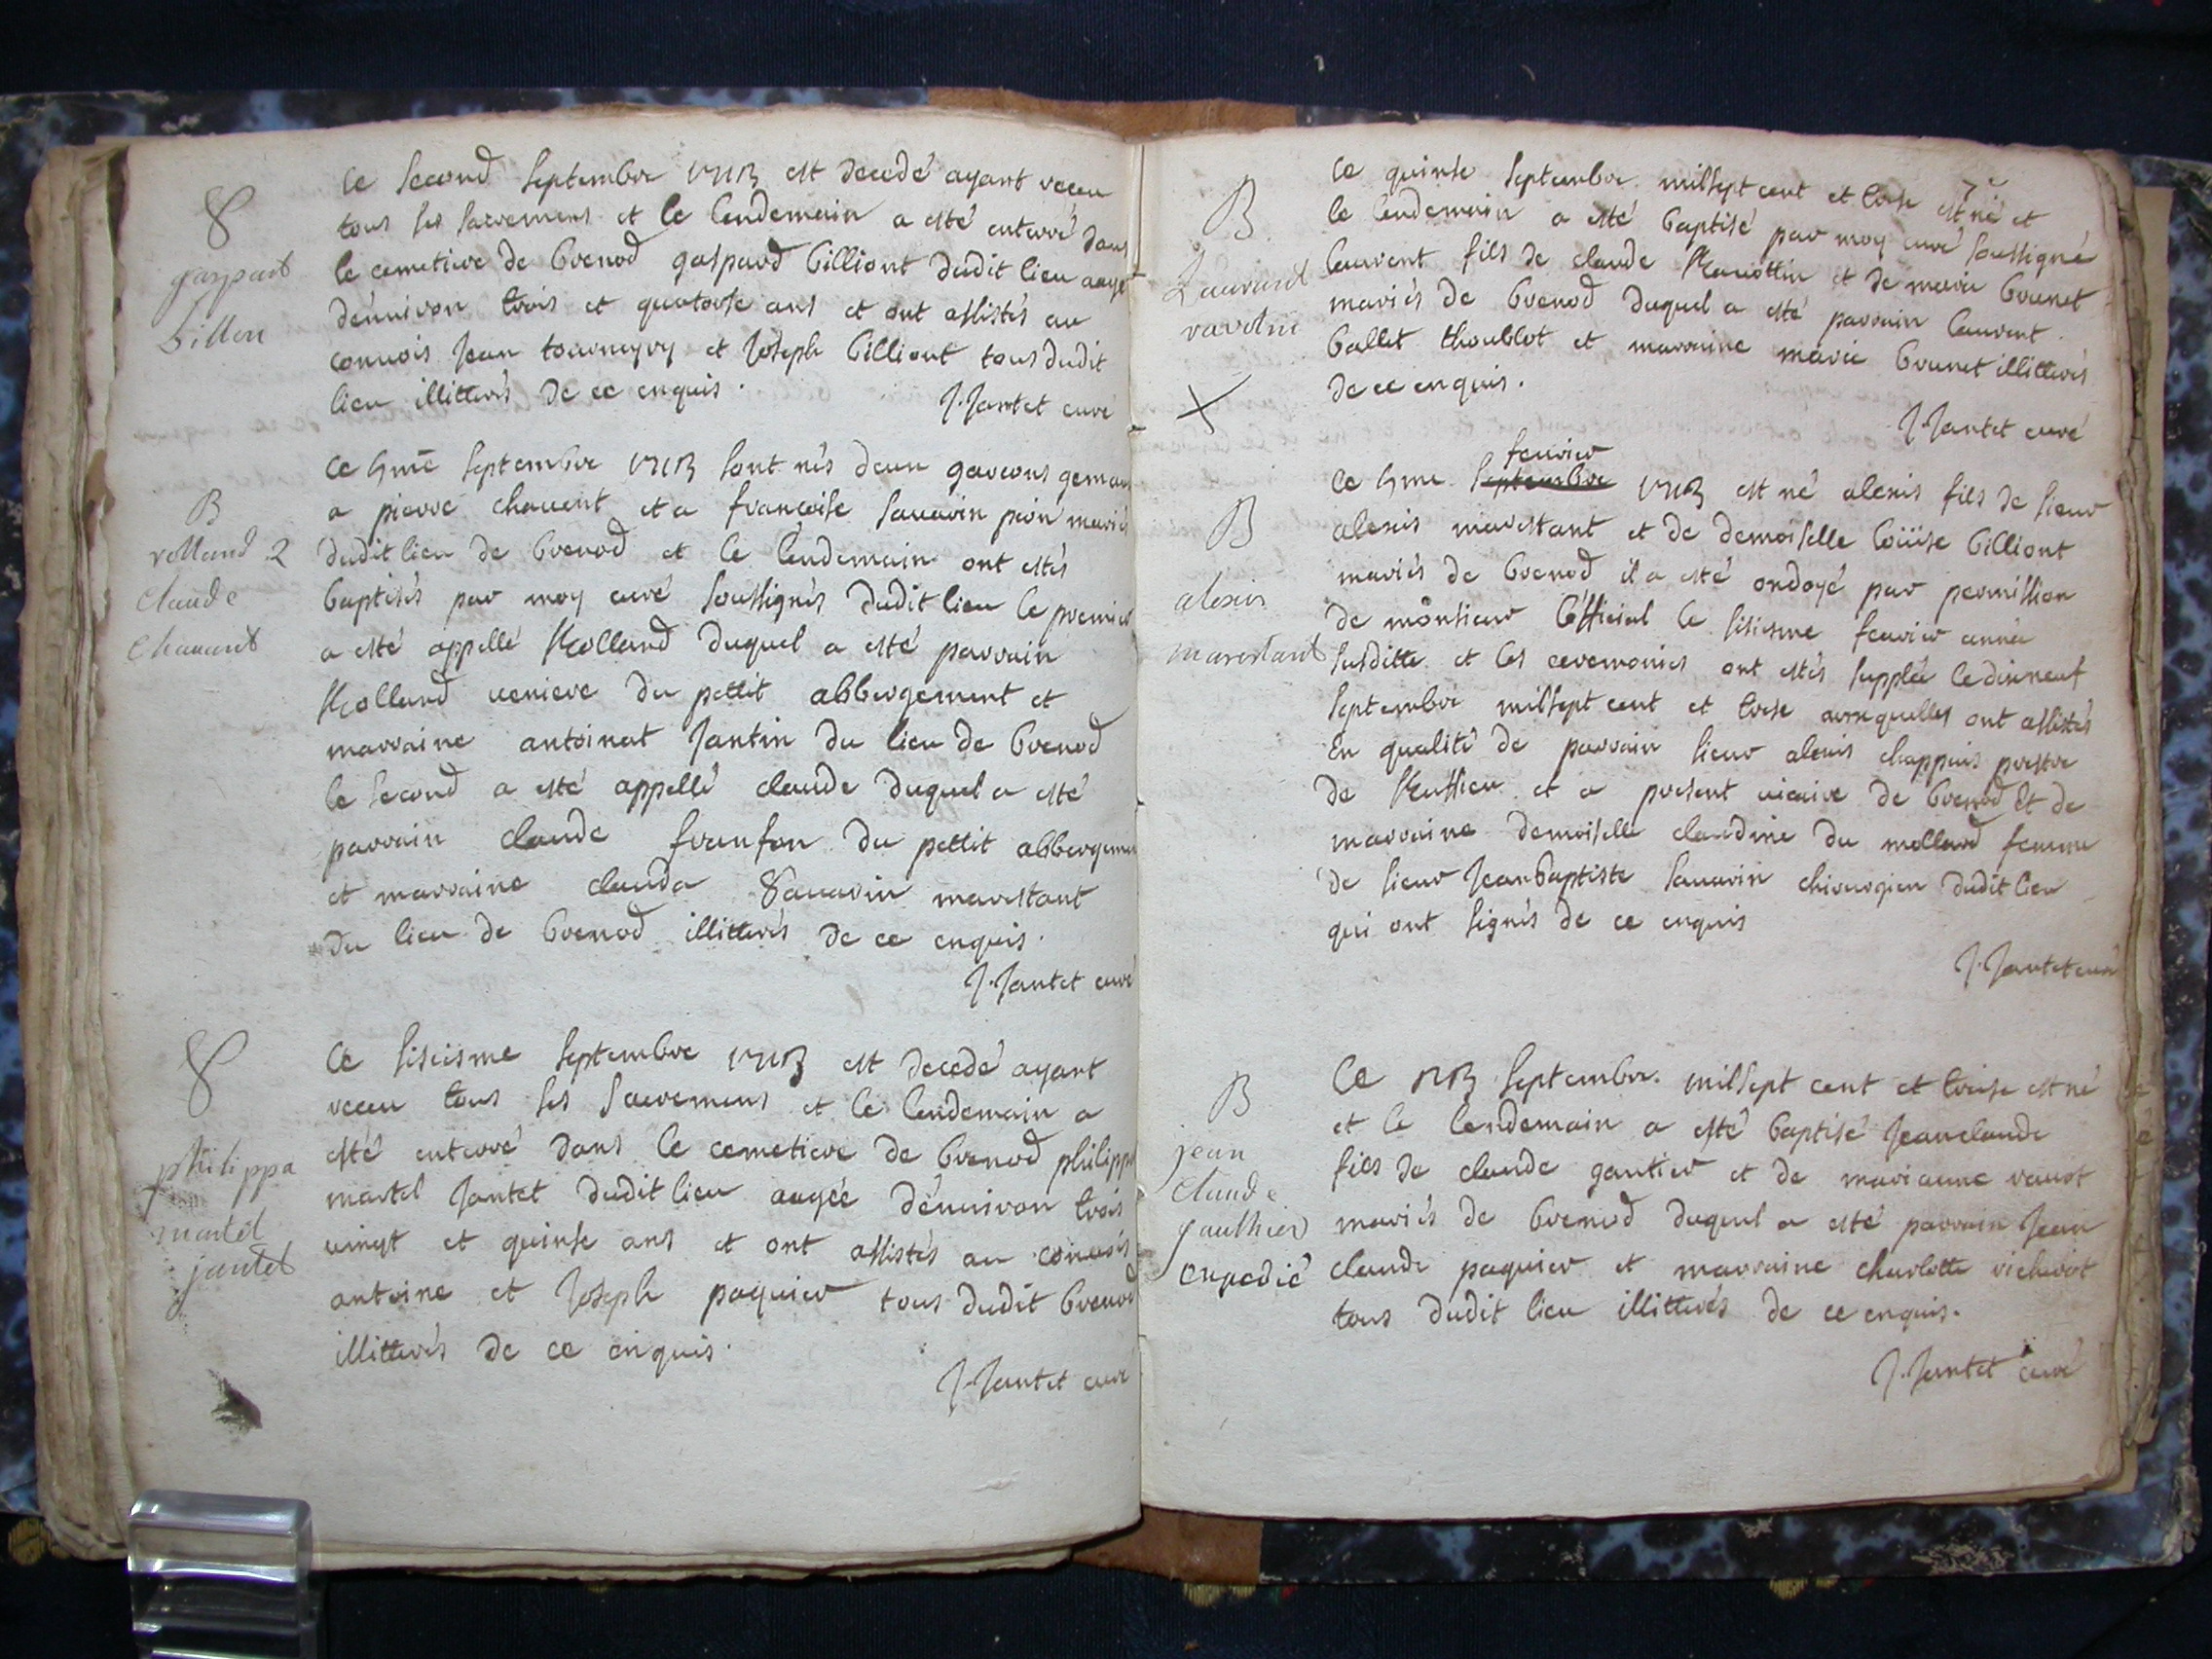 S
gaspart
billon
Ce second septembre 1713 est decedé ayant receu
tous ses sacremens et le lendemain a esté enterré dans
le cemetiere de brenod gaspard billiont dudit lieu aagé
d'enuiron trois et quatorse ans et ont assistés au
conuois jean tournegry et joseph billiont tous dudit
lieu illitterés de ce enquis.
J. Jantet curé
B
rolland 2
claude
chauant
Ce 5me septembre 1713 sont nés deux garcons gemaux
a pierre chauent et a francoise sauarin pion mariés
dudit lieu de brenod et le lendemain ont estés
baptisés par moy curé soussignés dudit lieu le premier
a esté appellé Rolland duquel a esté parrain
Rolland ueniere du pettit abbergement et
marraine antoinat Jantin du lieu de brenod
le second a esté appellé claude duquel a esté
parrain claude franfon du pettit abbergement
et marraine clauda Sauarin marestant
du lieu de brenod illitterés de ce enquis.
J. Jantet curé
S
philippa
martel
jantet
Ce sisiesme septembre 1713 est decedé ayant
receu tous ses sacremens et le lendemain a
esté enterré dans le cemetiere de brenod philippa
martel Jantet dudit lieu aagée d'enuiron trois
uingt et quinse ans et ont assistés au conuois
antoine et Joseph paquier tous dudit brenod
illitterés de ce enquis.
J. Jantet curé
B
Laurand
ravotin
X
Ce quinse septembre milsept cent et trese est né et
le lendemain a esté baptisé par moy curé soussigné
laurent fils de claude Rauottin et de marie brunet
mariés de brenod duquel a esté parrain laurent
ballet thoublot et marraine marie brunet illitterés
de ce enquis.
J. Jantet curé
B
alexis
marestant
feurier
Ce 5me septembre 1713 est né alexis fils de sieur
alexis marestant et de demoiselle loüise billiont
mariés de brenod il a esté ondoyé par permission
de monsieur l'official le sisiesme feurier année
susditte et les ceremonies ont estés supplée le dixneuf
septembre milsept cent et trese auxquelles ont assistés
En qualité de parrain sieur alexis chappuis prestre
de Ruffieu et a present uicaire de brenod Et de
marraine demoiselle claudine du mollard femme
de sieur Jean baptiste sauarin chirurgien dudit lieu
qui ont signés de ce enquis
J. Jantet curé
B
jean
claude
gauthier
expedié
Ce septembre milsept cent et treise est né
et le lendemain a esté baptisé Jean claude
fils de claude gautier et de marianne rauot
mariés de brenod duquel a esté parrain Jean
claude paquier et marraine charlotte richerot
tous dudit lieu illitterés de ce enquis.
J. Jantet curé